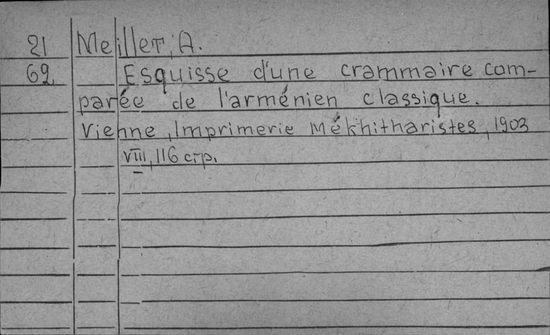 21 Meillet, A.
69. Esquisse d'une crammaire com-
parée de l'arménien classique.
Vienne, Imprimerie Mékhitharistes, 1903
VIII, 116 стр.